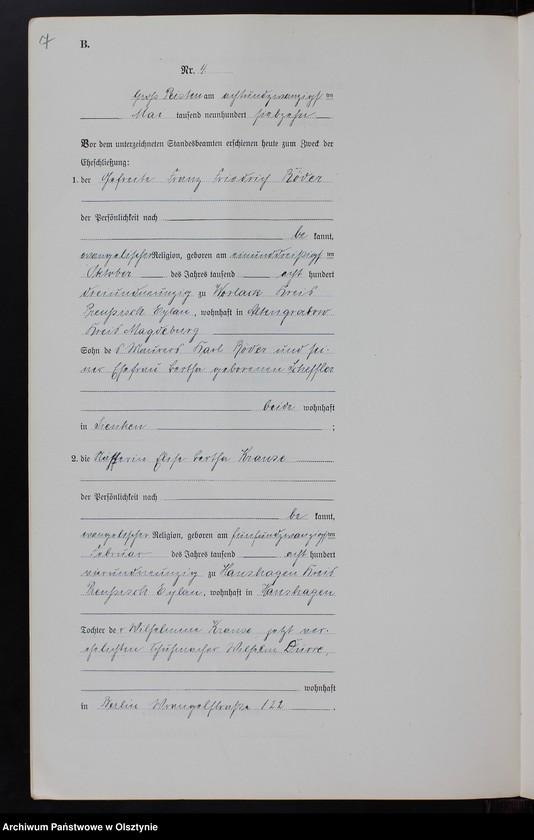 7
B.
Nr. 4.
Groß Peisten am achtundzwanzigsten
Mai tausend neunhundert siebzehn
Vor dem unterzeichneten Standesbeamten erschienen heute zum Zweck der
Eheschließung:
1. der Gefreite Franz Friedrich Röder
der Persönlichkeit nach
be kannt,
evangelischer Religion, geboren am einunddreißigsten
Oktober des Jahres tausend acht hundert
dreiundneunzig zu Worlack Kreis
Preußisch Eylau, wohnhaft in Altengrabow
Kreis Magdeburg
Sohn des Maurers Karl Röder und sei-
ner Ehefrau Bertha geborenen Scheffler
beide wohnhaft
in ;
2. die Bertha Krause
der Persönlichkeit nach
be kannt,
evangelischer Religion, geboren am fünfundzwanzigsten
Februar des Jahres tausend acht hundert
vierundneunzig zu Hanshagen Kreis
Preußisch Eylau, wohnhaft in Hanshagen
Tochter der Wilhelmine Krause jetzt ver-
ehelichten Schuhmacher Wilhelm Durre,
wohnhaft
in Berlin Wrangelstraße 122 .
Archiwum Państwowe w Olsztynie